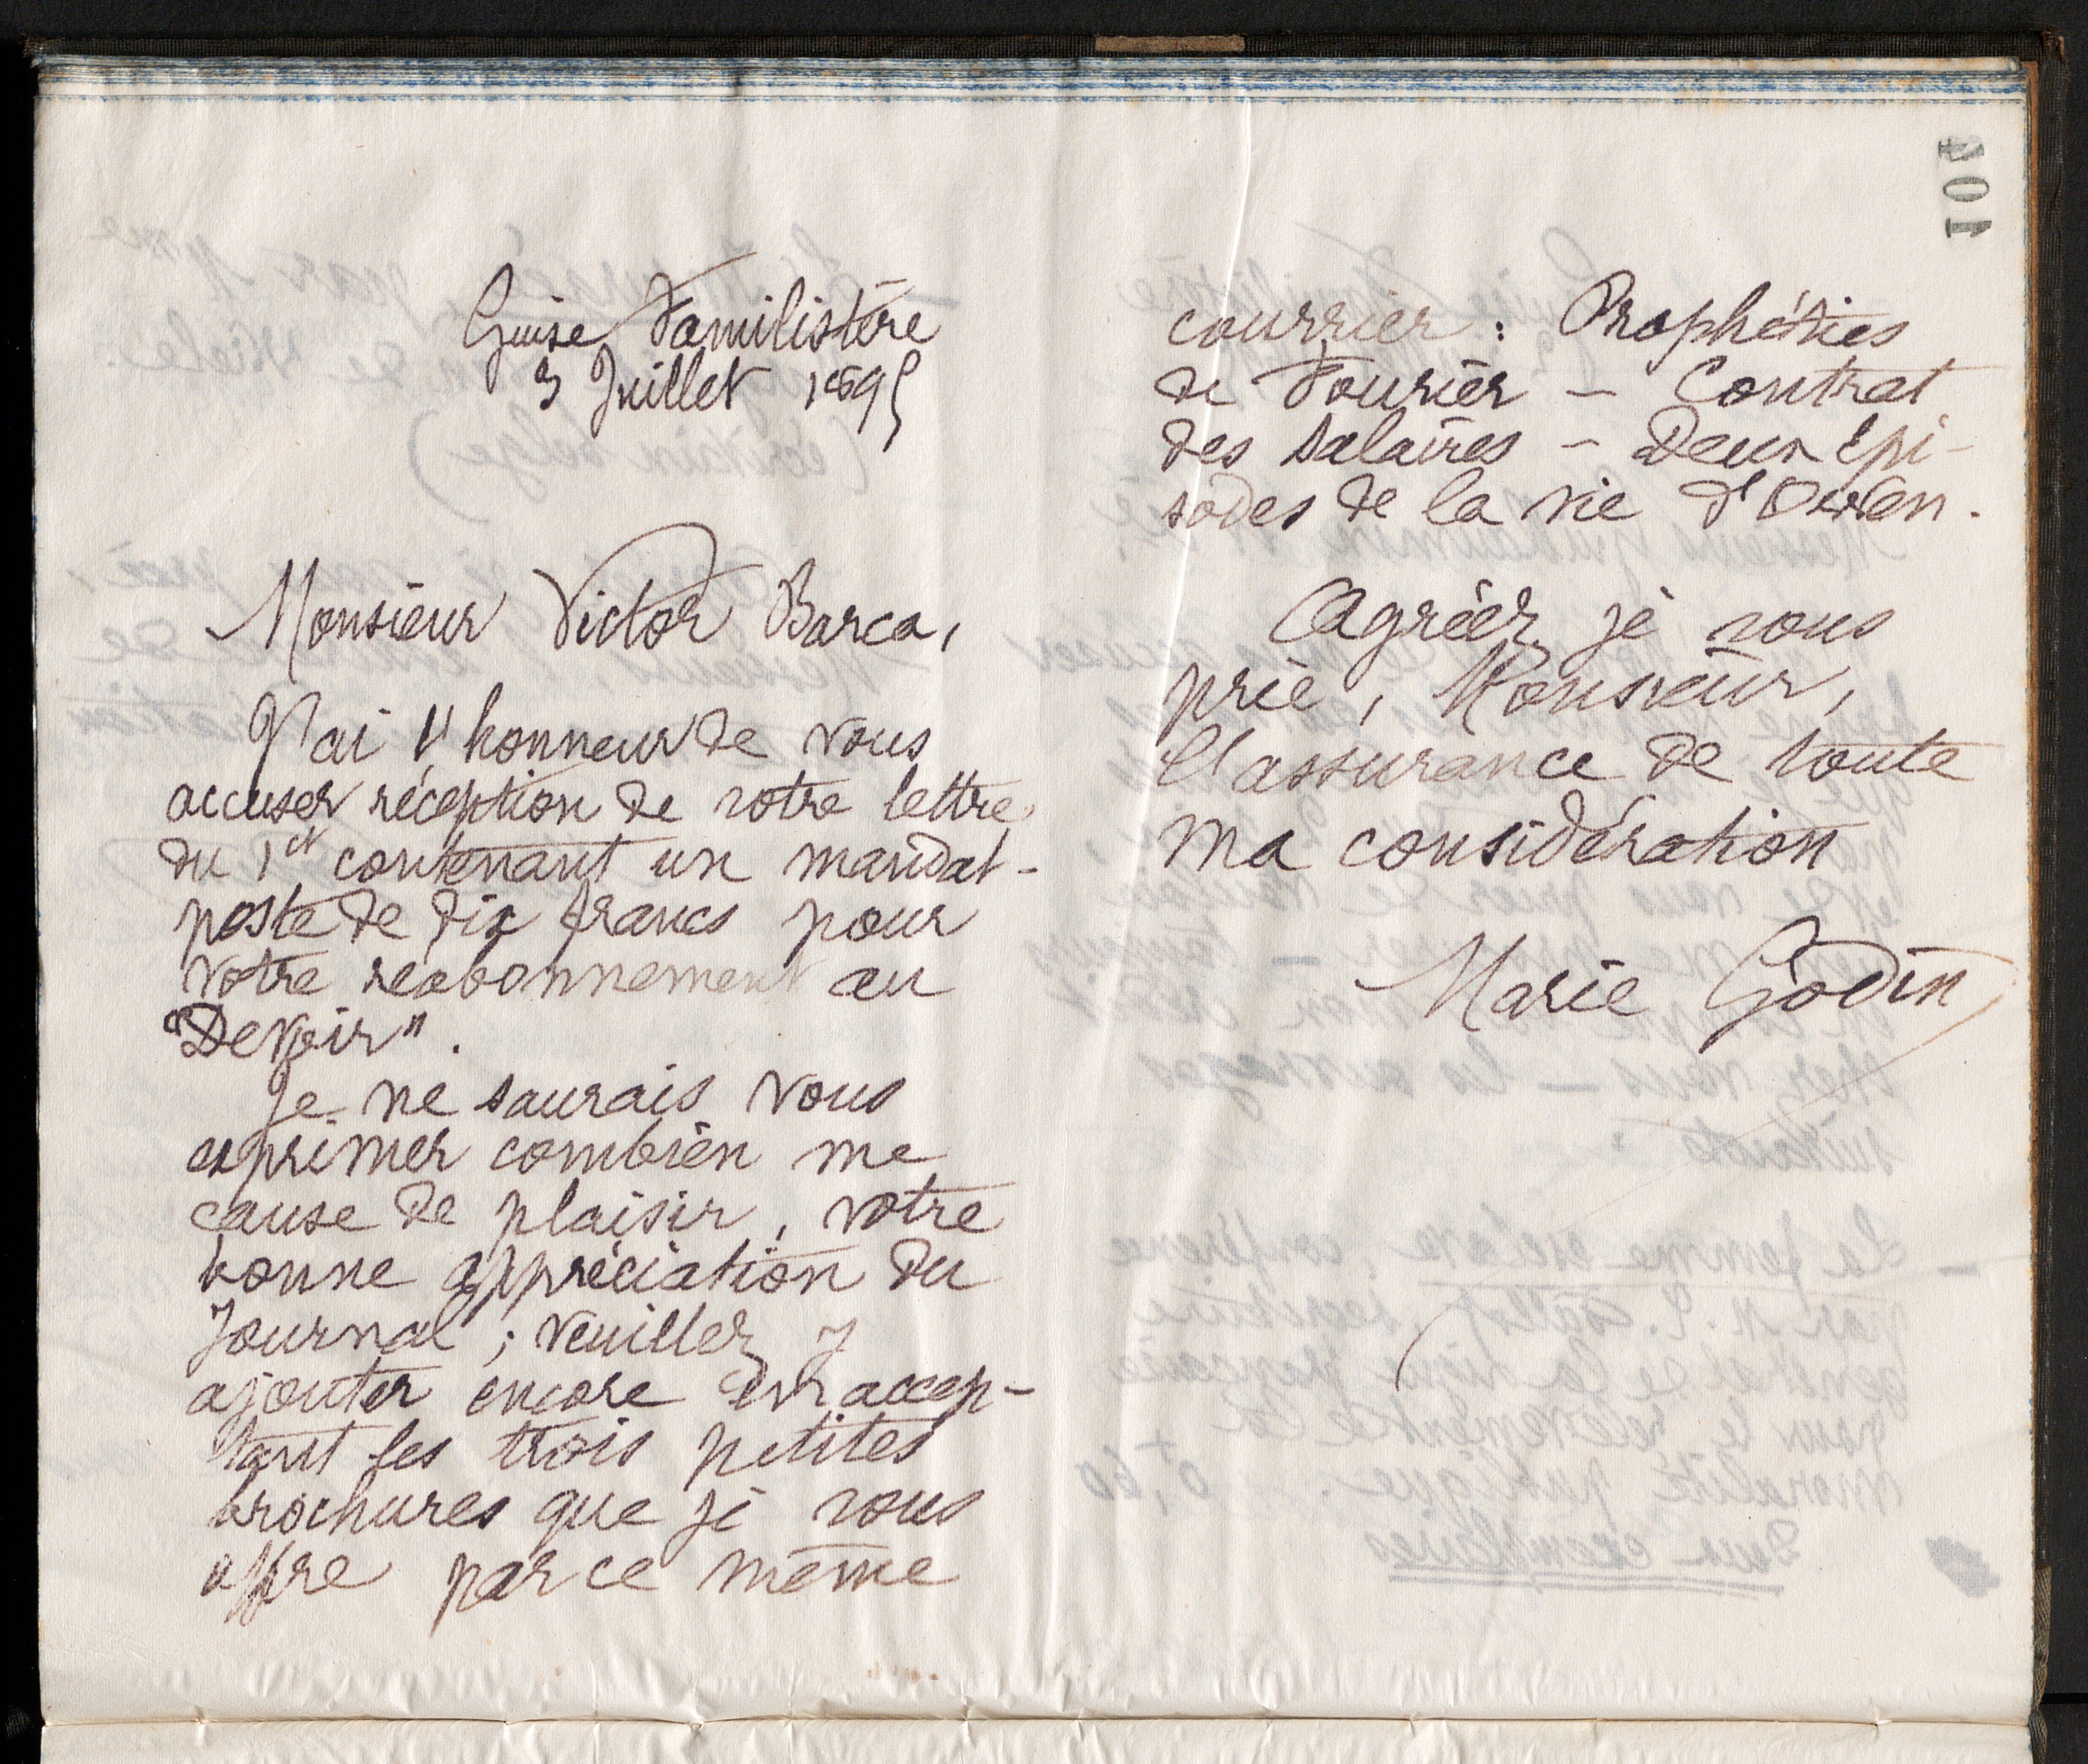 Guise Familistère
3 Juillet 1895
Monsieur Victor Barca,
J'ai l'honneur de vous
accuser réception de votre lettre
du 1er contenant un mandat-
poste de dix francs pour
votre reabonnement au
"Devoir".
Je ne saurais vous
exprimer combien me
cause de plaisir, votre
bonne appréciation du
Journal ; veuillez y
ajouter encore en accep-
tant les trois petites
brochures que je vous
offre par ce même
104
courrier : Prophéties
de Fourier - Contrat
des salaires - Deux épi-
sodes de la vie d'Owen.
Agréer, je vous
prie, Monsieur,
l'assurance de toute
ma considération
Marie Godin